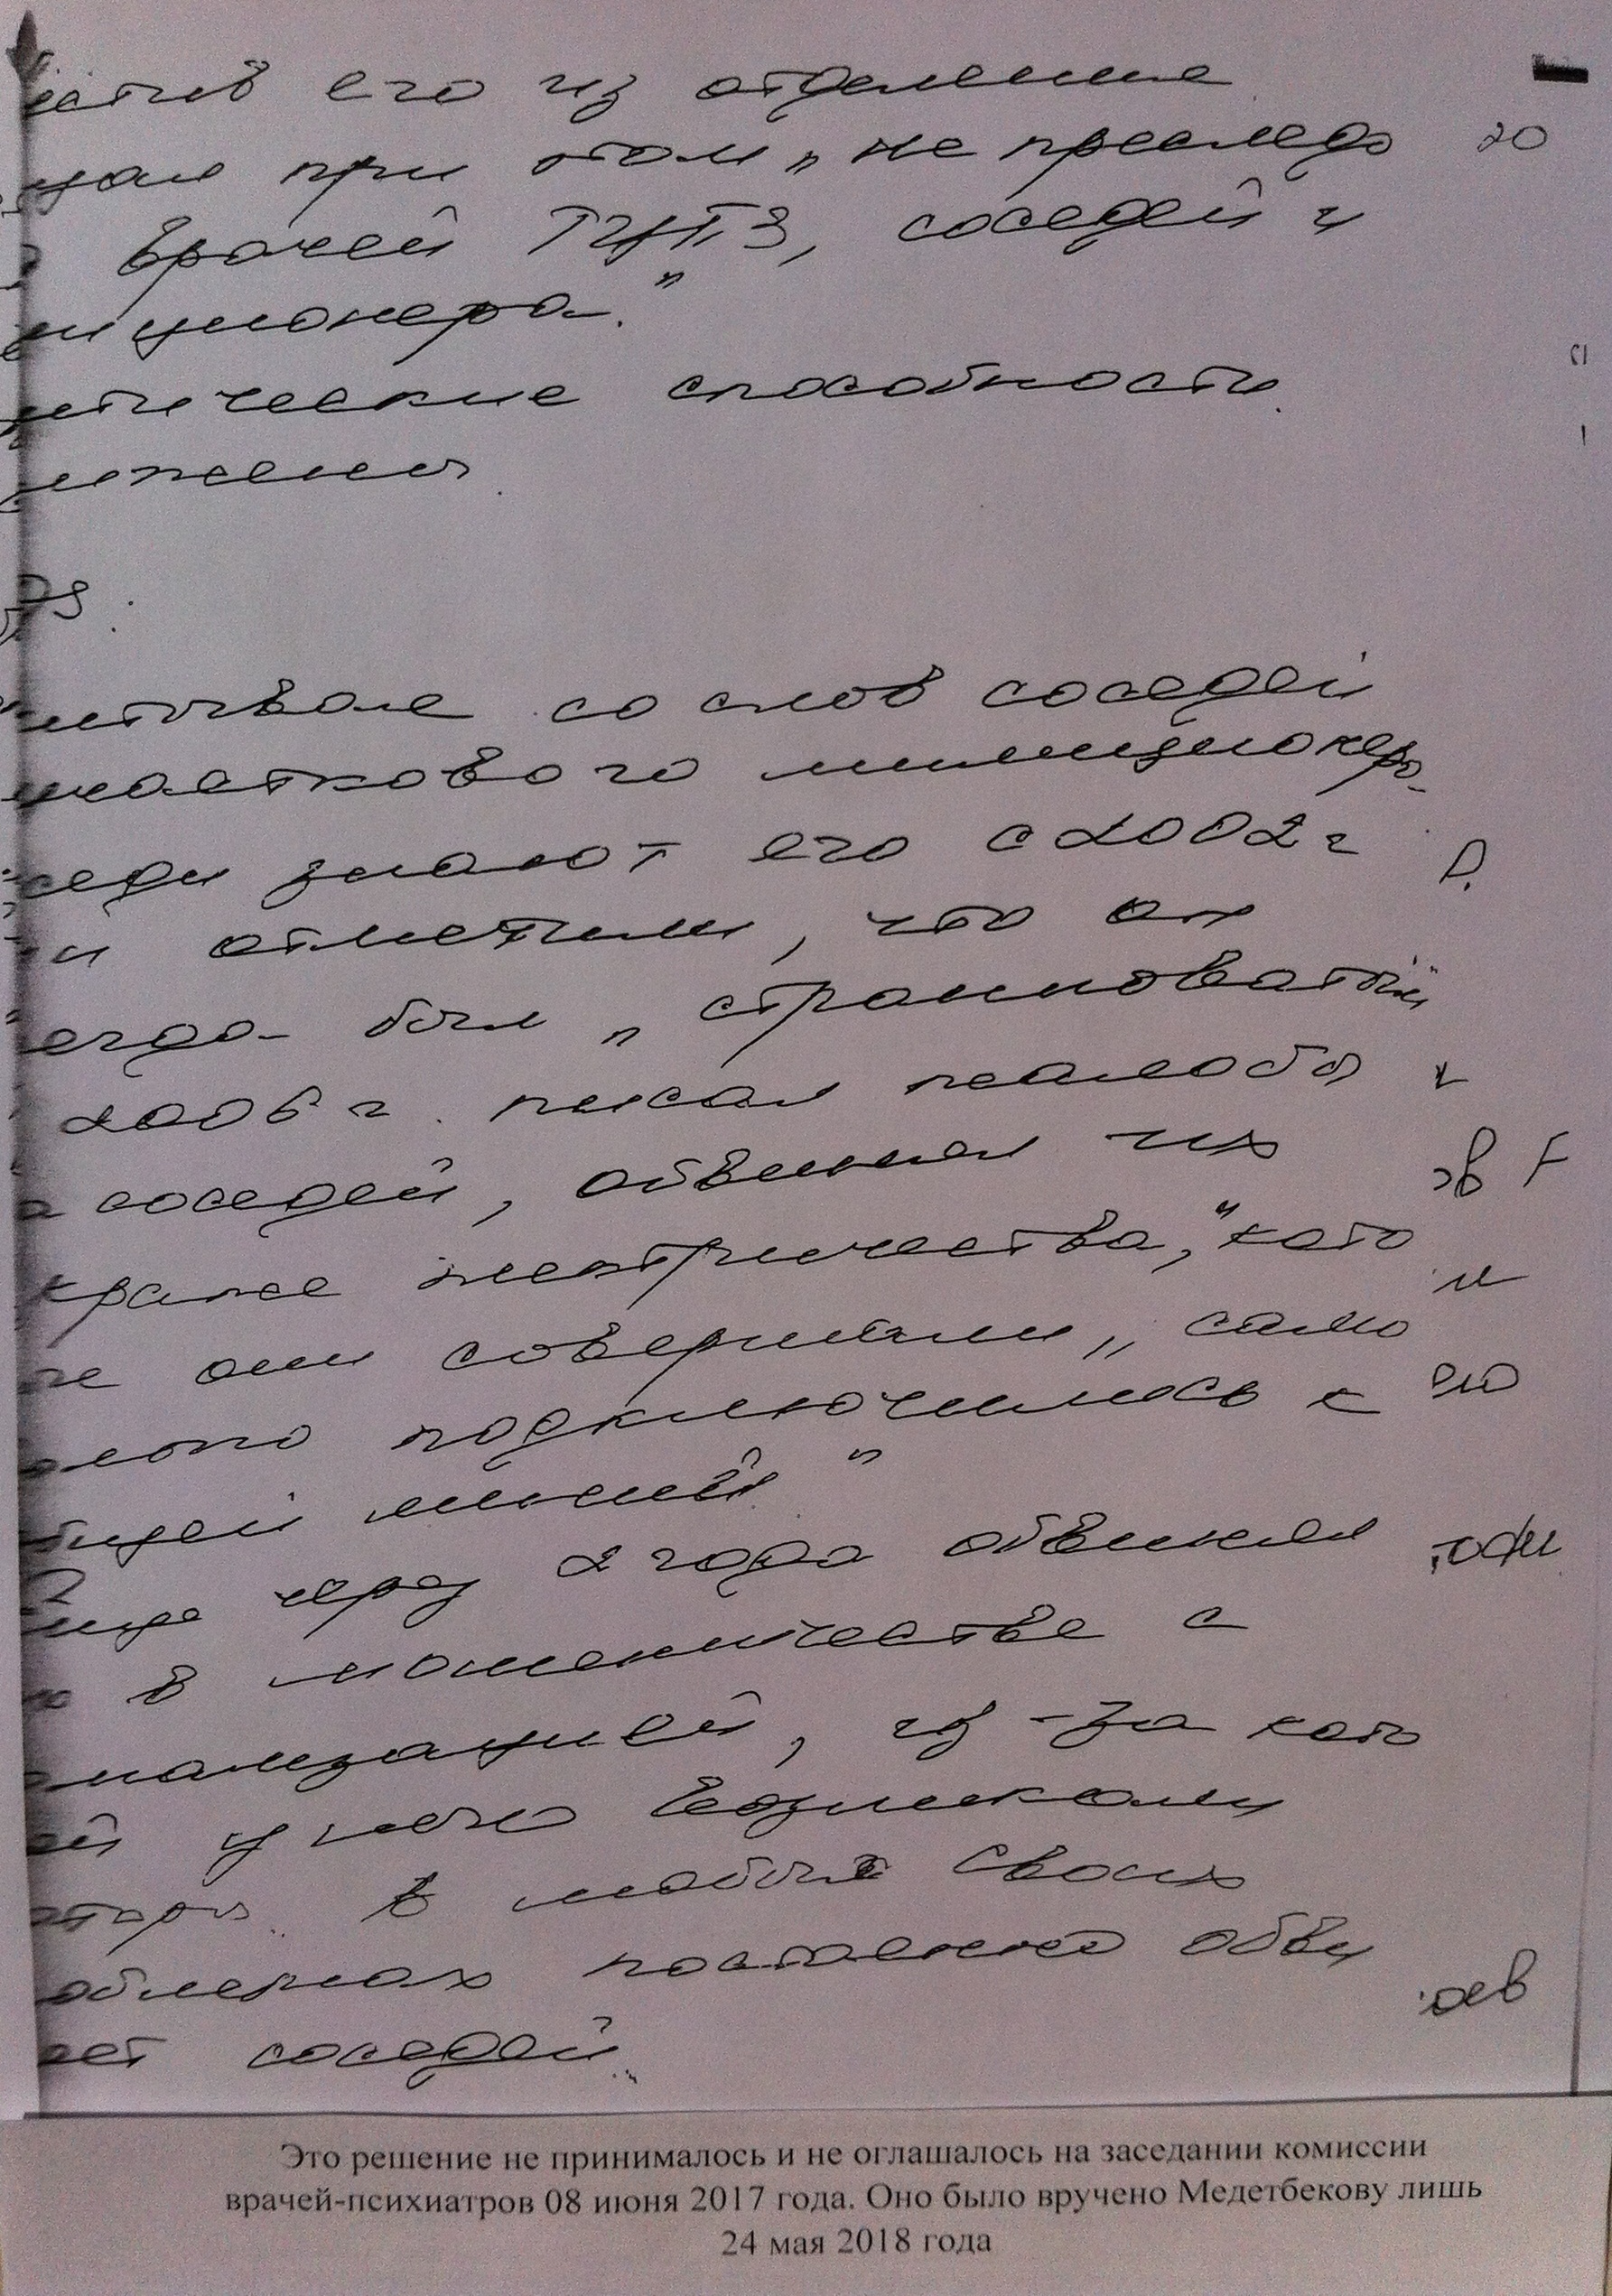 его из отделения
при этом „не преследо 20
врачей ГЦПЗ, соседей и
ционера."
ические способности
жены
со слов соседей
участкового милиционера.
седи знают его с 2002 г
и отметили, что он
егда был „странноватый"
2006 г. писал жалобы
соседей, обвинял их
краже электричества," кото
ые они совершали „само
подключились к
бщей линии"
через 2 года обвинял
в мошенничестве с
нализацией, из-за кото
ой у него возникали
В любых своих
облемах постоянно обви
яет соседей.
ов
Это решение не принималось и не оглашалось на заседании комиссии
врачей-психиатров 08 июня 2017 года. Оно было вручено Медетбекову лишь
24 мая 2018 года